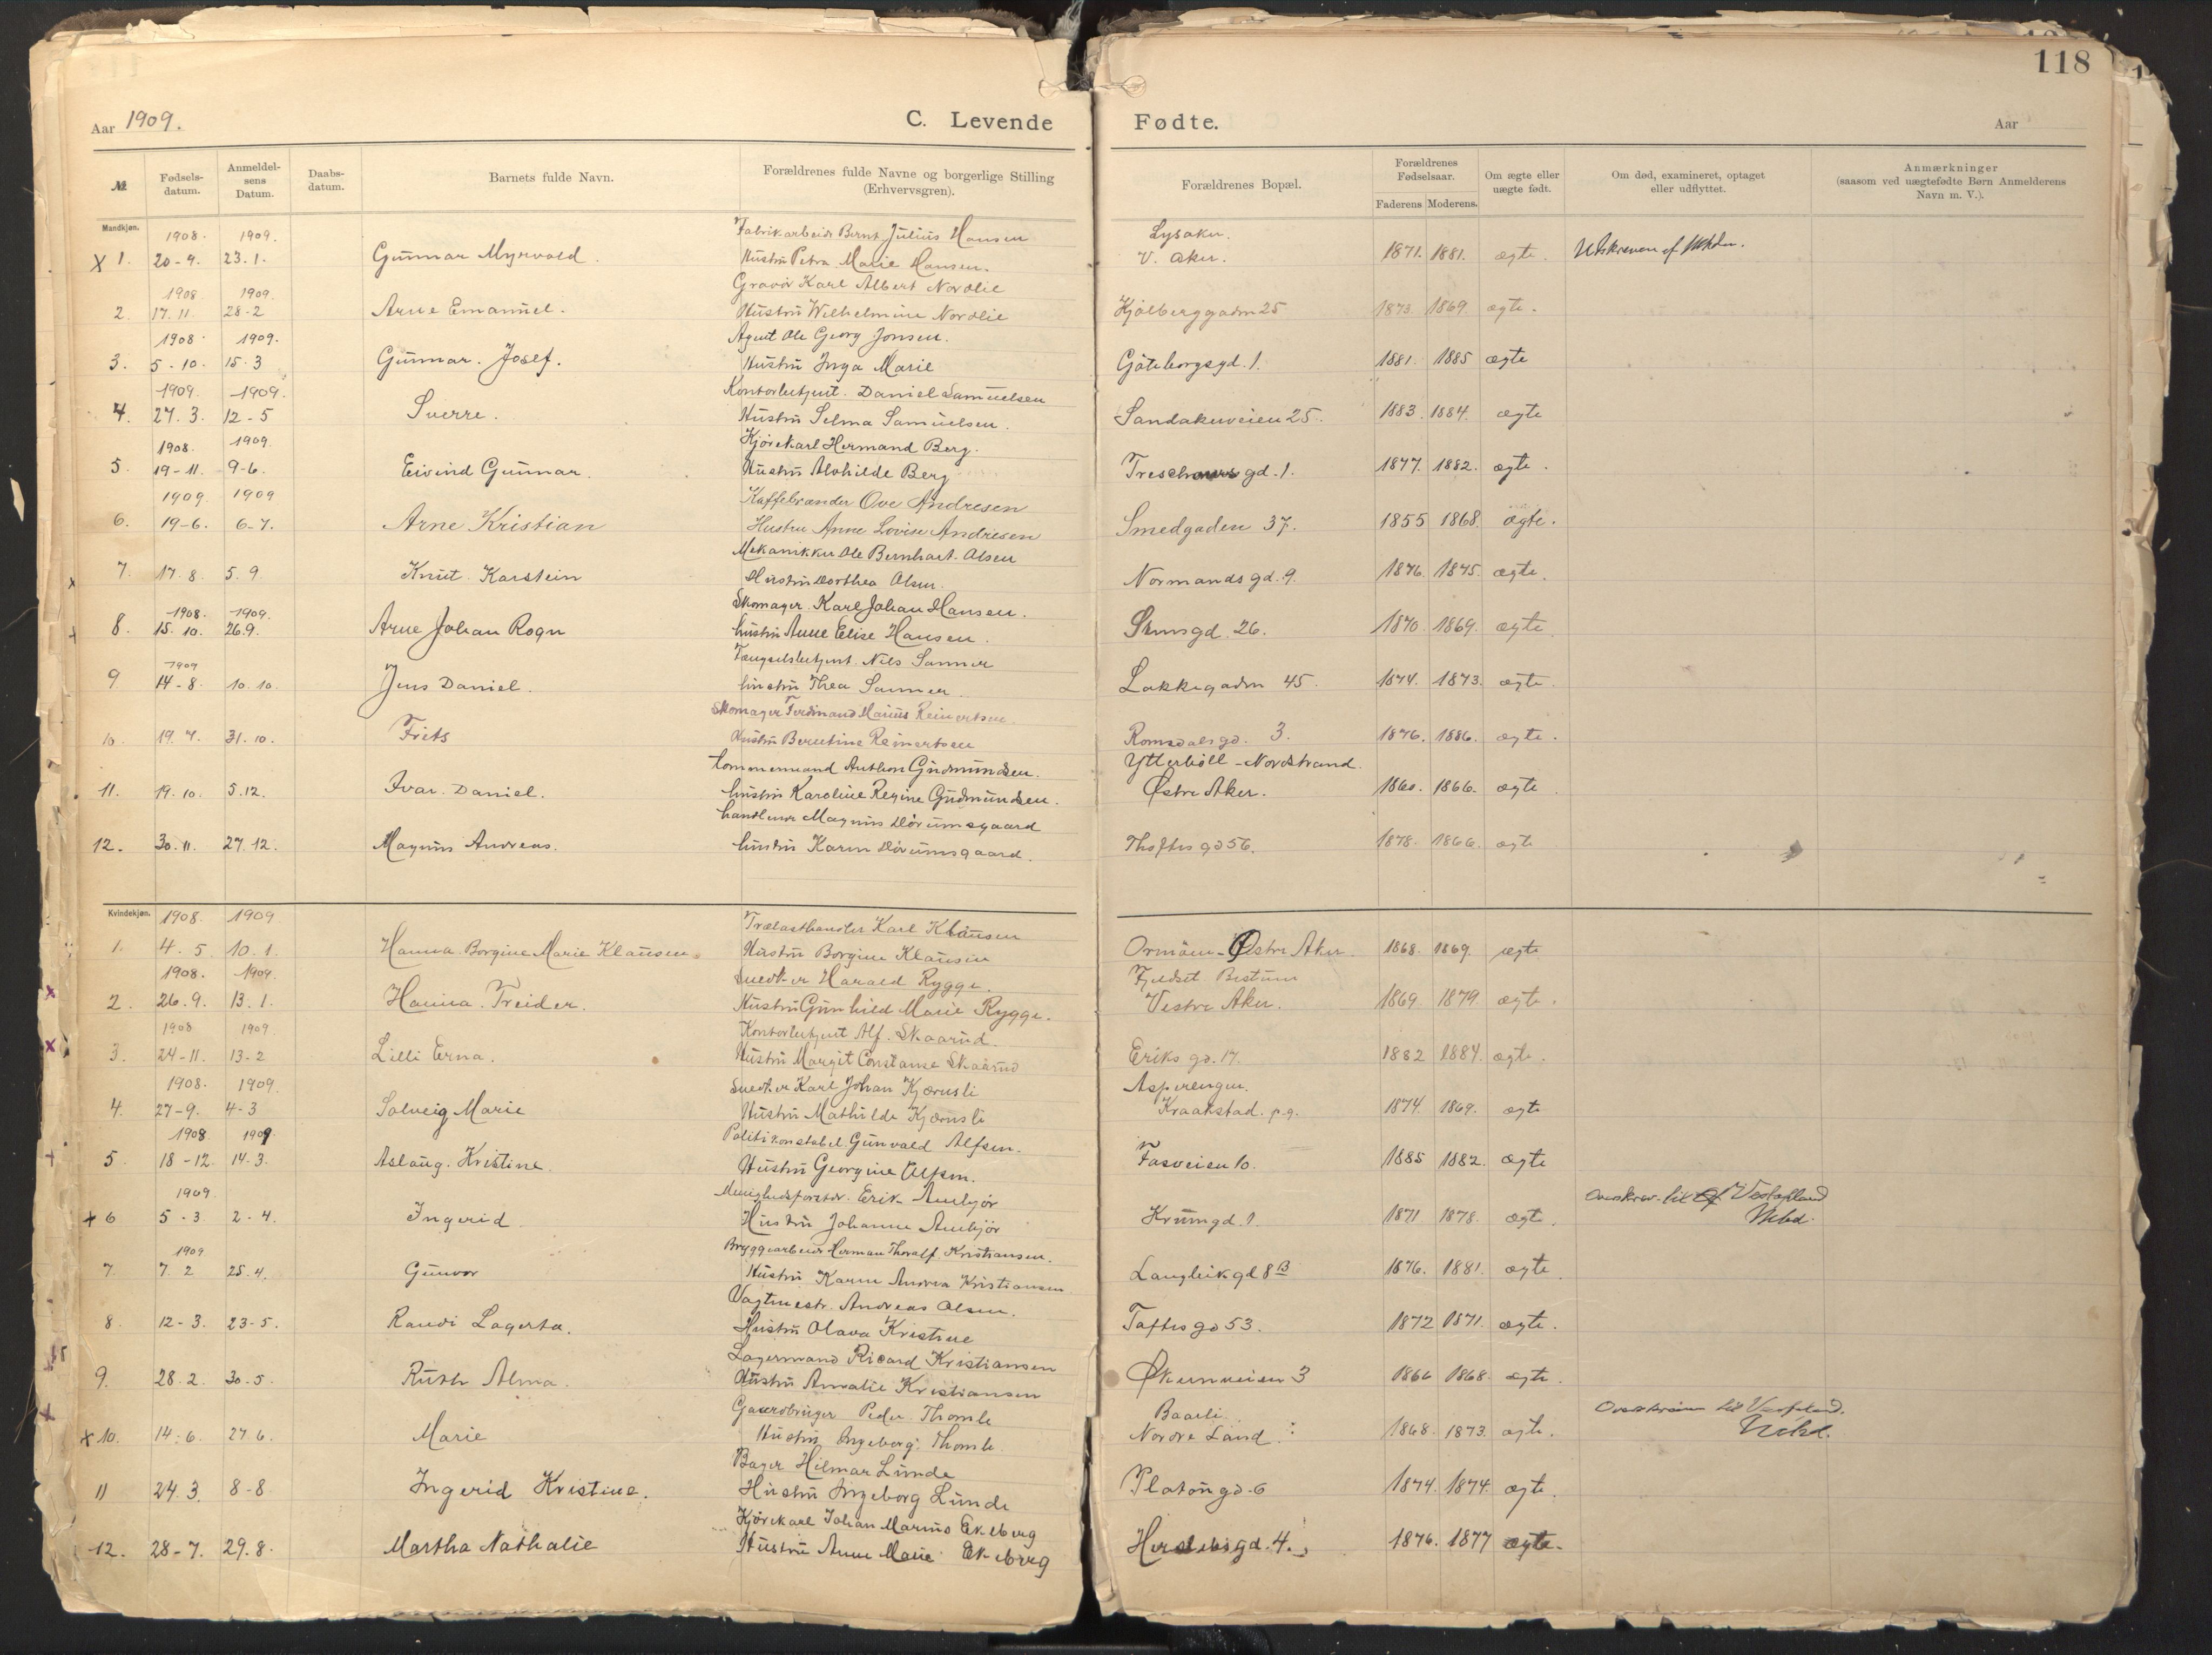 118
Aar 1909. C. Levende Fødte. Aar
№ Fødselsdatum. Anmeldelsens Datum. Daabsdatum. Barnets fulde Navn. Forældrenes fulde Navne og borgerlige Stilling (Erhvervsgren). Forældrenes Bopæl. Forældrenes Fødselsaar. Faderens Moderens. Om ægte eller uægte født. Om død, examineret, optaget eller udflyttet. Anmærkninger (saasom ved uægtefødte Børn Anmelderens Navn m. V.).
Mandkjøn.
1908. 1909. Fabrikarbeider Bernt Julius Hansen Lysaker.
x 1. 20-9. 23.1. Gunnar Myrvold. Hustru Petra Marie Hansen. V. Aker. 1871. 1881. ægte.
1908 1909. Gravør Karl Albert Nordlie
2. 17.11 28-2 Arne Emanuel. Hustru Wilhelmine Nordlie Kjølberggaden 25 1873. 1869. ægte.
1908 1909. Agent Ole Georg Jonsen.
3. 5.10. 15.3 Gunnar. Josef. Hustru Inga Marie Göteborgsgd. 1. 1881. 1885 ægte
1909. 1909. Kontorbetjent. Daniel Samuelsen
4. 27.3. 12-5 Sverre. Hustru Selma Samuelsen. Sandakerveien 25. 1883. 1884. ægte
1908. 1909. Kjørekarl Hermand Berg.
5. 19-11. 9-6. Eivind Gunnar. Hustru Alvhilde Berg Treschows gd. 1. 1877. 1882. ægte.
1909. 1909 Kaffebrænder Ove Andresen
6. 19-6. 6-7. Arne Kristian Hustru Anne Lovise Andresen Smedgaden 37. 1855 1868. ægte.
Mekanikker Ole Bernhart. Olsen
x 7. 17.8. 5.9. Knut. Karstein Hustru Dorthea Olsen. Normandsgd. 9. 1876. 1875. ægte.
1908. 1909. Skomager. Karl Johan Hansen.
8. 15.10. 26.9. Arne Johan Rogn hustru Anne Elise Hansen. 26. 1870. 1869. ægte.
1909 Fængselsbetjent. Nils Sanner
9 14-8. 10.10. Jens Daniel. hustru Thea Sanner. Lakkegaden 45. 1874. 1873. ægte.
Skomager Ferdinand Marius Reinertsen.
10. 19.7. 31.10. Frits Hustru Berntine Reinertsen Romsdalsgd. 3. 1876. 1886. ægte.
Tømmermand Anthon Gudmundsen. Ytterböll - Nordstrand.
11. 19.10. 5.12. Ivar. Daniel. hustru Karoline Regine Gudmundsen. Østre Aker. 1860. 1866. ægte.
Magnus Dörumsgaard
12. 30.11. 27.12. Magnus Andreas. hustru Karen Dörumsgaard. Thoftes gd 56. 1878. 1866. ægte
Kvindekjøn.
1908. 1909 Trælasthandler Karl Klausen
1. 4.5. 10.1. Hanna Borgine Marie Klausen. Hustru Borgine Klausen Ormöen - Østre Aker. 1868. 1869. ægte
1908. 1909. Snedker Harald Rygge. Fjeldset Bestum
x 2. 26.9. 13.1. Hanna. Treider. Hustru Gunhild Marie Rygge. Vestre Aker. 1869. 1879 ægte.
1908 1909. Kontorbetjent Alf. Skaarud.
x 3. 24-11. 13-2 Lilli Erna. Hustru Margit Constanse Skaarud Eriks gd. 17. 1882 1884. ægte.
1908. 1909. Snedker Karl Johan Kjærnsli Asperengen.
4. 27-9. 4-3 Solveig Marie Hustru Mathilde Kjærnsli Kraakstad. p.g. 1874. 1869. ægte
1908. 1909. Politikonstabel. Gunvald Alfsen.
5. 18-12. 14.3. Aslaug. Kristine. Hustru Georgine Alfsen. Fasveien 10. 1885 1882. ægte
1909. Menighedsforstdr. Erik Ambjör Overskrev. til Vestopland
x 6 5-3. 2-4. Ingerid. Hustru Johanne Ambjör Krumgd. 1 1871 1878. ægte.
1909 Bryggearbeider Herman Thoralf. Kristiansen.
7. 7.2 25.4. Gunvor Hustru Karen Andrea Kristiansen Langleikgd 8B 1876. 1881. ægte.
Vagtmestr. Andreas Olsen.
8. 12-3. 23-5. Randi Lagerta. Hustru Olava Kristine Taftes gd 53. 1872 1871. ægte.
Lagermand Ricard Kristiansen
9. 28.2. 30.5. Ruth Alma. Hustru Amalie Kristiansen Økernveien 3 1866 1868. ægte.
Gaardbruger Peder. Thomle Baarli
x 10. 14.6. 27.6. Marie Hustru Ingeborg. Thomle. Nordre Land. 1868. 1873. ægte.
Bager Hilmar Lunde
11 24.3. 8-8 Ingerid Kristine. Hustru Ingeborg Lunde Platougd. 6 1874. 1874. ægte.
Kjørekarl Johan Marius Ekeberg
12. 28-7. 29.8. Martha Nathalie Hustru Anne Marie Ekeberg Herslebsgd. 4. 1876. 1877 ægte.